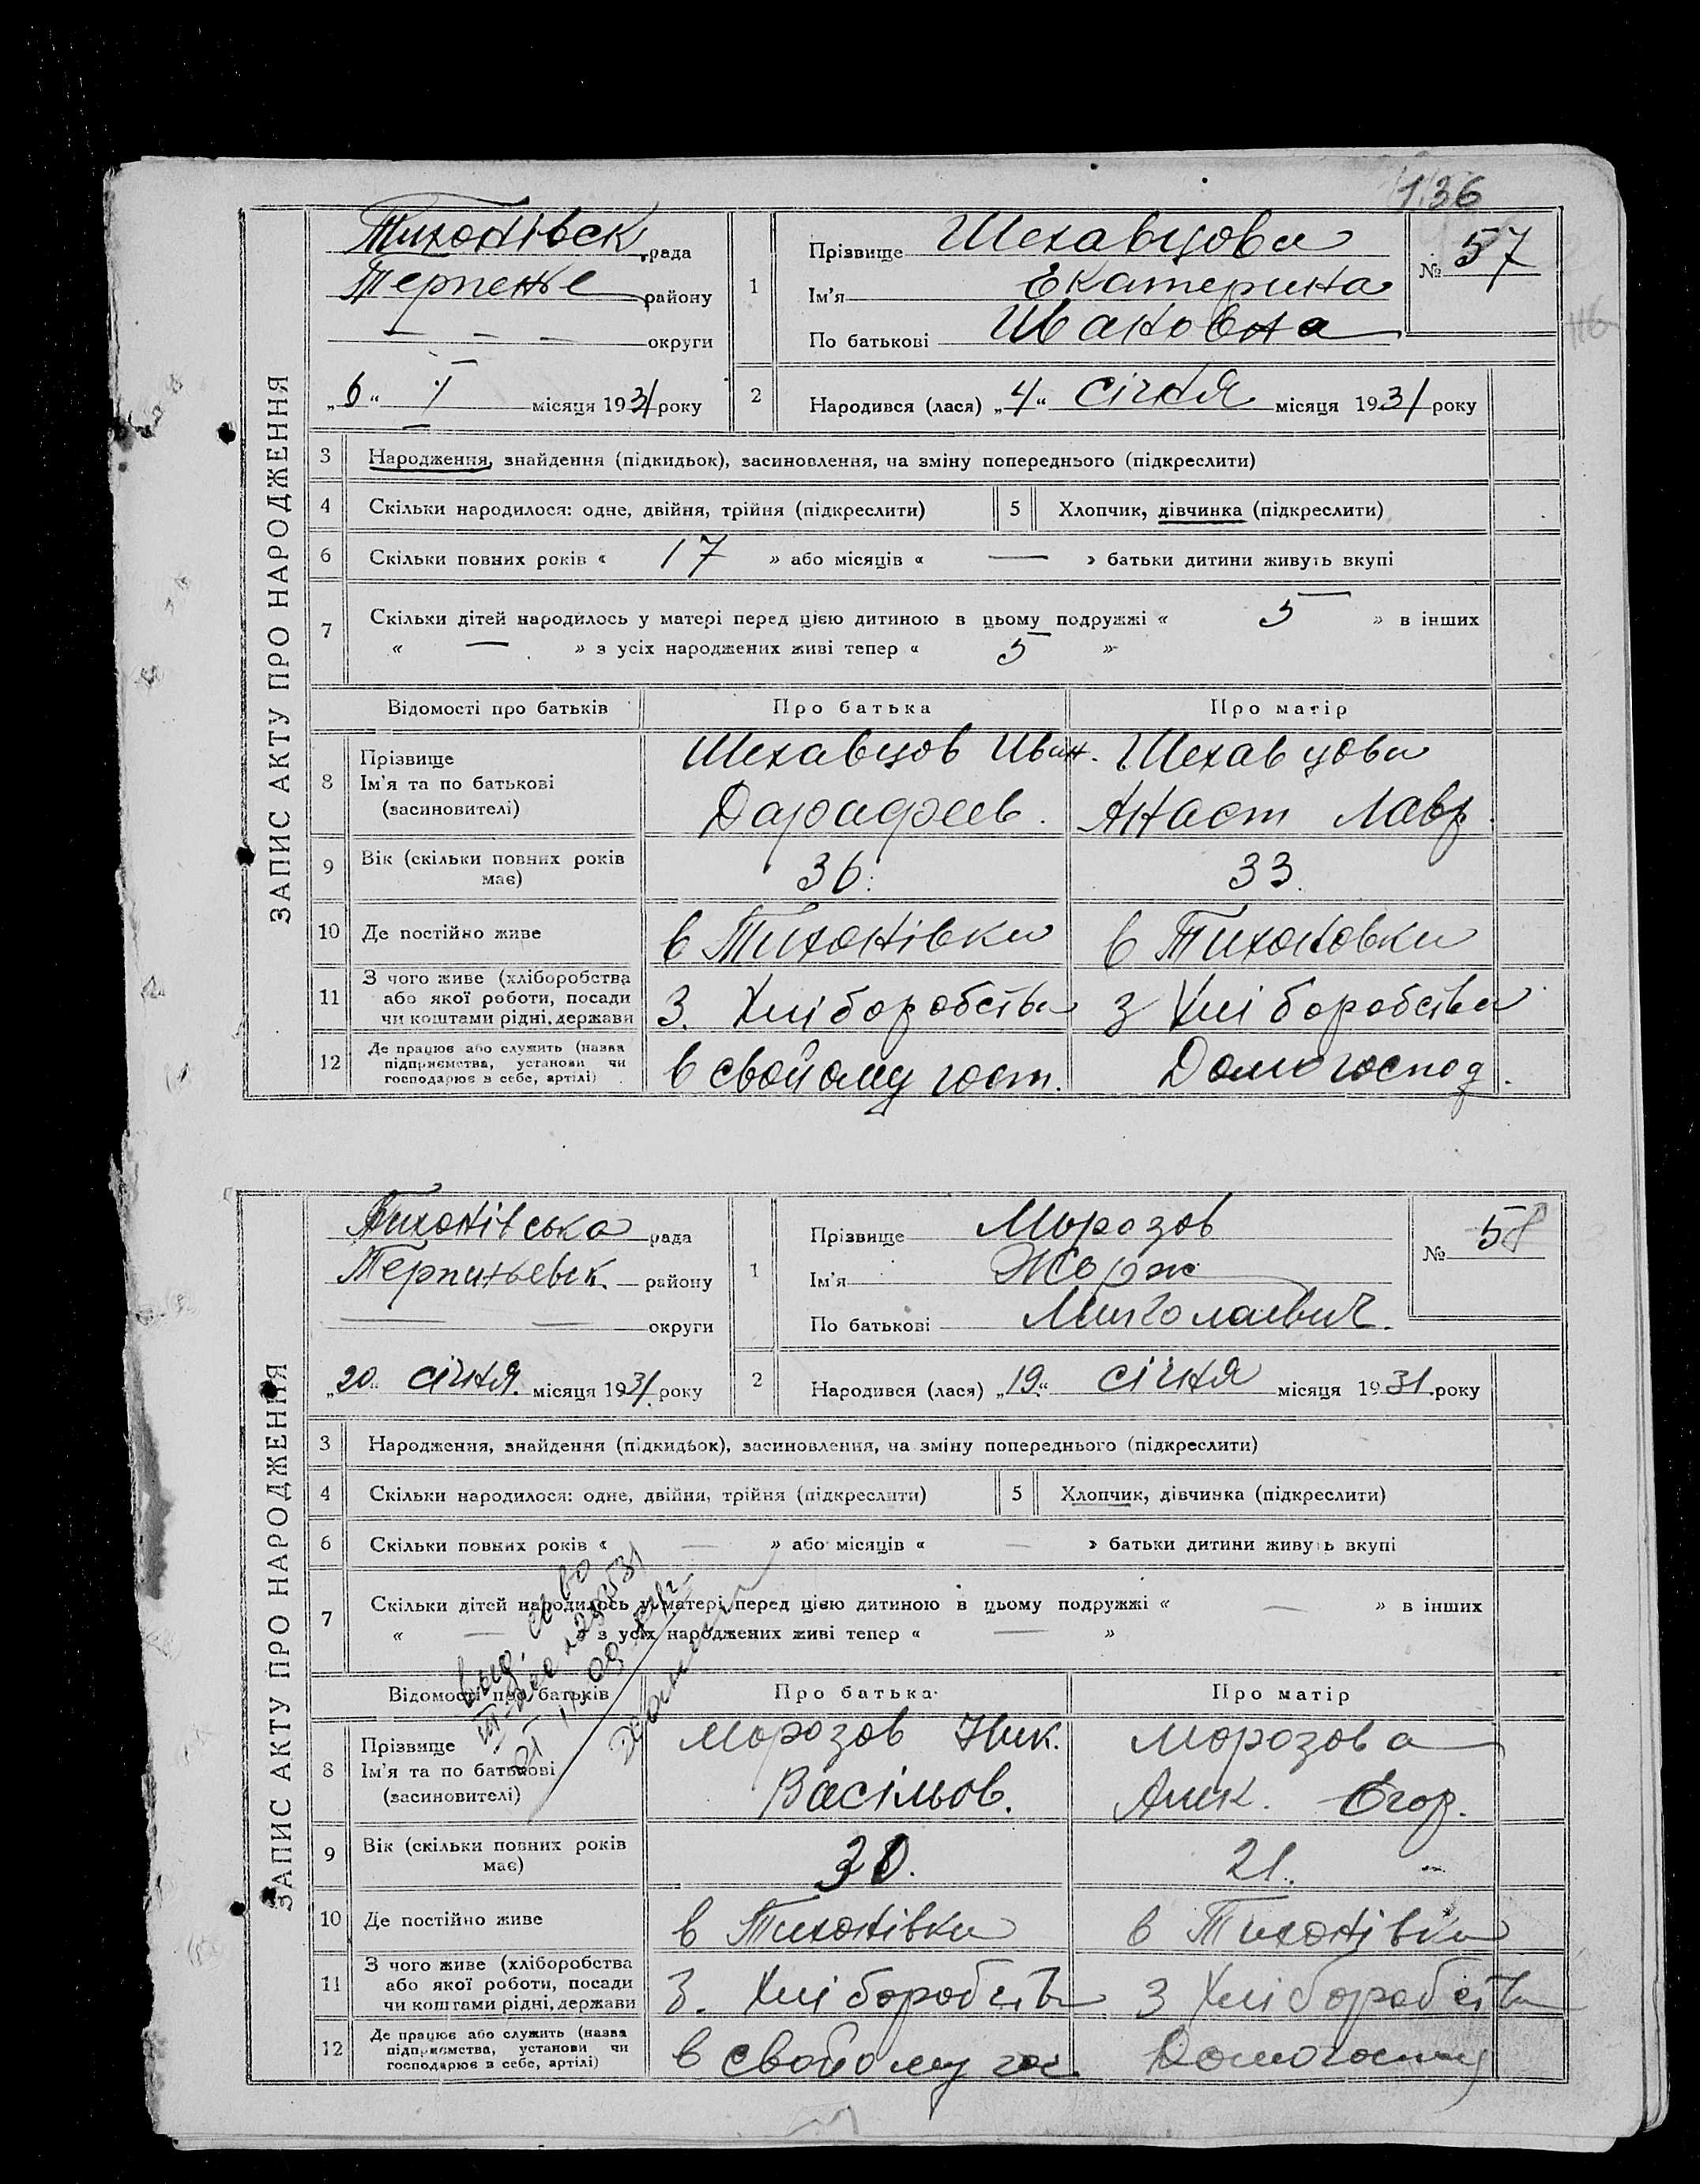 136
ЗАПИС АКТУ ПРО НАРОДЖЕННЯ
Тихонівськ рада
Терпенье району
— — — округи
„6“ I місяця 1931 року
1 Прізвище Шехавцова
Ім'я Екатерина
По батькові Ивановна
№ 57
2 Народився (лася) „4“ січня місяця 1931 року
3 Народження, знайдення (підкидьок), засиновлення, на зміну попереднього (підкреслити)
4 Скільки народилося: одне, двійня, трійня (підкреслити) 5 Хлопчик, дівчинка (підкреслити)
6 Скільки повних років « 17 » або місяців « — » батьки дитини живуть вкупі
7 Скільки дітей народилось у матері перед цією дитиною в цьому подружжі « 5 » в інших
« — » з усіх народжених живі тепер « 5 »
Відомості про батьків Про батька Про матір
8 Прізвище
Ім'я та по батькові
(засиновителі)
Шехавцов Иван.
Дарафеев.
Шехавцова
Анаст Лавр.
9 Вік (скільки повних років
має)
36. 33.
10 Де постійно живе в Тихонівки в Тихоновки
11 З чого живе (хліборобства
або якої роботи, посади
чи коштами рідні, держави
З. Хліборобства З Хліборобства
12 Де працює або служить (назва
підприємства, установи чи
господарює в себе, артілі)
в свойому госп. Домогоспод.
ЗАПИС АКТУ ПРО НАРОДЖЕННЯ
Тихонівська рада
Терпиньевск. — району
— — округи
„20“ січня. місяця 1931. року
1 Прізвище Морозов
Ім'я Жорж
По батькові Миколаевич.
№ 58
2 Народився (лася) „19“ січня місяця 1931. року
3 Народження, знайдення (підкидьок), засиновлення, на зміну попереднього (підкреслити)
4 Скільки народилося: одне, двійня, трійня (підкреслити) 5 Хлопчик, дівчинка (підкреслити)
6 Скільки повних років « — » або місяців « — » батьки дитини живуть вкупі
7 Скільки дітей народилось у матері перед цією дитиною в цьому подружжі « — » в інших
« — » з усіх народжених живі тепер « — »
выд. св во
Відомості про батьків Про батька Про матір
8 Прізвище
Ім'я та по батькові
(засиновителі)
Морозов Ник.
Васільов.
Морозова
Алик. Егор.
9 Вік (скільки повних років
має)
21.
10 Де постійно живе в Тихонівки в Тихонівки
11 З чого живе (хліборобства
або якої роботи, посади
чи коштами рідні, держави
З. Хліборобств З Хліборобств
12 Де працює або служить (назва
підприємства, установи чи
господарює в себе, артілі)
в свойому гос. Домогоспод